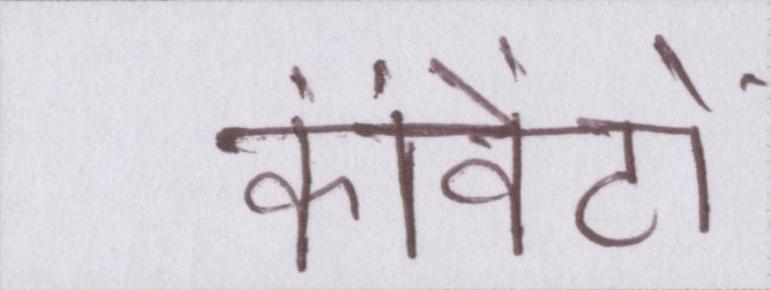 कांवेंटों